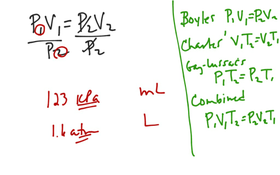 P₁V₁ = P₂V₂
P₂ P₂
123 kPa mL
1.6 atm L
Boyles P₁V₁=P₂V₂
Charles' V₁T₂=V₂T₁
Gay-lussacs
P₁T₂=P₂T₁
Combined
P₁V₁T₂=P₂V₂T₁